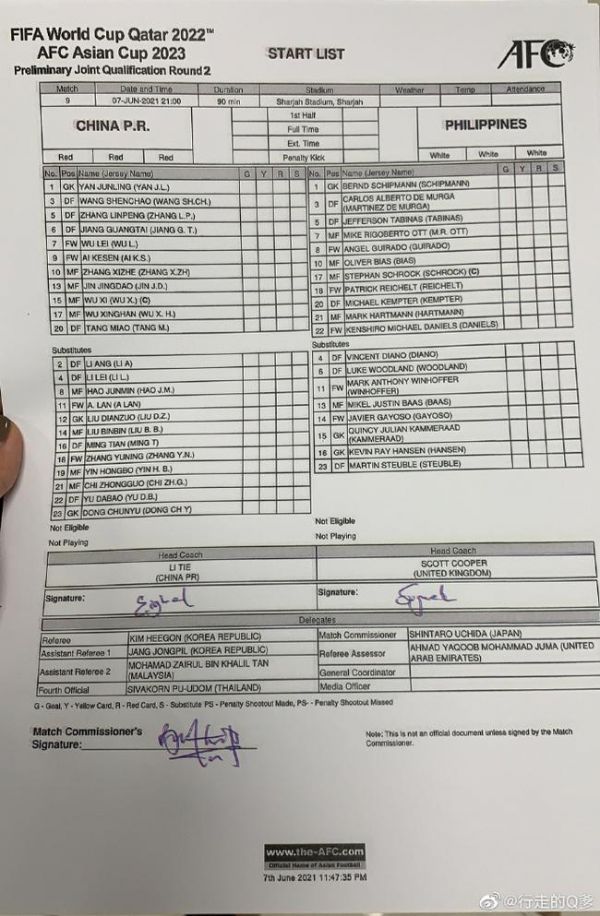 FIFA World Cup Qatar 2022™
AFC Asian Cup 2023
Preliminary Joint Qualification Round 2
START LIST
AFC
Match Date and Time Duration Stadium Weather Temp Attendance
9 07-JUN-2021 21:00 90 min Sharjah Stadium, Sharjah
CHINA P.R.
1st Half
Full Time
Ext. Time
Penalty Kick
PHILIPPINES
Red Red Red
White White White
No. Pos Name (Jersey Name) G Y R S
1 GK YAN JUNLING (YAN J.L.)
3 DF WANG SHENCHAO (WANG SH.CH.)
5 DF ZHANG LINPENG (ZHANG L.P.)
6 DF JIANG GUANGTAI (JIANG G. T.)
7 FW WU LEI (WU L.)
9 FW AI KESEN (AI K.S.)
10 MF ZHANG XIZHE (ZHANG X.ZH)
13 MF JIN JINGDAO (JIN J.D.)
15 MF WU XI (WU X.) (C)
17 MF WU XINGHAN (WU X. H.)
20 DF TANG MIAO (TANG M.)
No. Pos Name (Jersey Name) G Y R S
1 GK BERND SCHIPMANN (SCHIPMANN)
3 DF CARLOS ALBERTO DE MURGA
(MARTINEZ DE MURGA)
5 DF JEFFERSON TABINAS (TABINAS)
7 MF MIKE RIGOBERTO OTT (M.R. OTT)
8 FW ANGEL GUIRADO (GUIRADO)
10 MF OLIVER BIAS (BIAS)
17 MF STEPHAN SCHROCK (SCHROCK) (C)
18 FW PATRICK REICHELT (REICHELT)
20 DF MICHAEL KEMPTER (KEMPTER)
21 MF MARK HARTMANN (HARTMANN)
22 FW KENSHIRO MICHAEL DANIELS (DANIELS)
Substitutes
2 DF LI ANG (LI A)
4 DF LI LEI (LI L.)
8 MF HAO JUNMIN (HAO J.M.)
11 FW A. LAN (A LAN)
12 GK LIU DIANZUO (LIU D.Z.)
14 MF LIU BINBIN (LIU B. B.)
16 DF MING TIAN (MING T)
18 FW ZHANG YUNING (ZHANG Y.N.)
19 MF YIN HONGBO (YIN H. B.)
21 MF CHI ZHONGGUO (CHI ZH.G.)
22 DF YU DABAO (YU D.B.)
23 GK DONG CHUNYU (DONG CH Y)
Not Eligible
Not Playing
Substitutes
4 DF VINCENT DIANO (DIANO)
6 DF LUKE WOODLAND (WOODLAND)
11 FW MARK ANTHONY WINHOFFER
(WINHOFFER)
13 MF MIKEL JUSTIN BAAS (BAAS)
14 FW JAVIER GAYOSO (GAYOSO)
15 GK QUINCY JULIAN KAMMERAAD
(KAMMERAAD)
16 GK KEVIN RAY HANSEN (HANSEN)
23 DF MARTIN STEUBLE (STEUBLE)
Not Eligible
Not Playing
Head Coach
LI TIE
(CHINA PR)
Signature:
Head Coach
SCOTT COOPER
(UNITED KINGDOM)
Signature:
Delegates
Referee KIM HEEGON (KOREA REPUBLIC)
Assistant Referee 1 JANG JONGPIL (KOREA REPUBLIC)
Assistant Referee 2 MOHAMAD ZAIRUL BIN KHALIL TAN
(MALAYSIA)
Fourth Official SIVAKORN PU-UDOM (THAILAND)
Match Commissioner SHINTARO UCHIDA (JAPAN)
Referee Assessor AHMAD YAQOOB MOHAMMAD JUMA (UNITED
ARAB EMIRATES)
General Coordinator
Media Officer
G - Goal, Y - Yellow Card, R - Red Card, S - Substitute PS - Penalty Shootout Made, PS- - Penalty Shootout Missed
Match Commissioner's
Signature:
Note: This is not an official document unless signed by the Match
Commissioner.
www.the-AFC.com
Official Home of Asian Football
7th June 2021 11:47:35 PM
@行走的Q爹